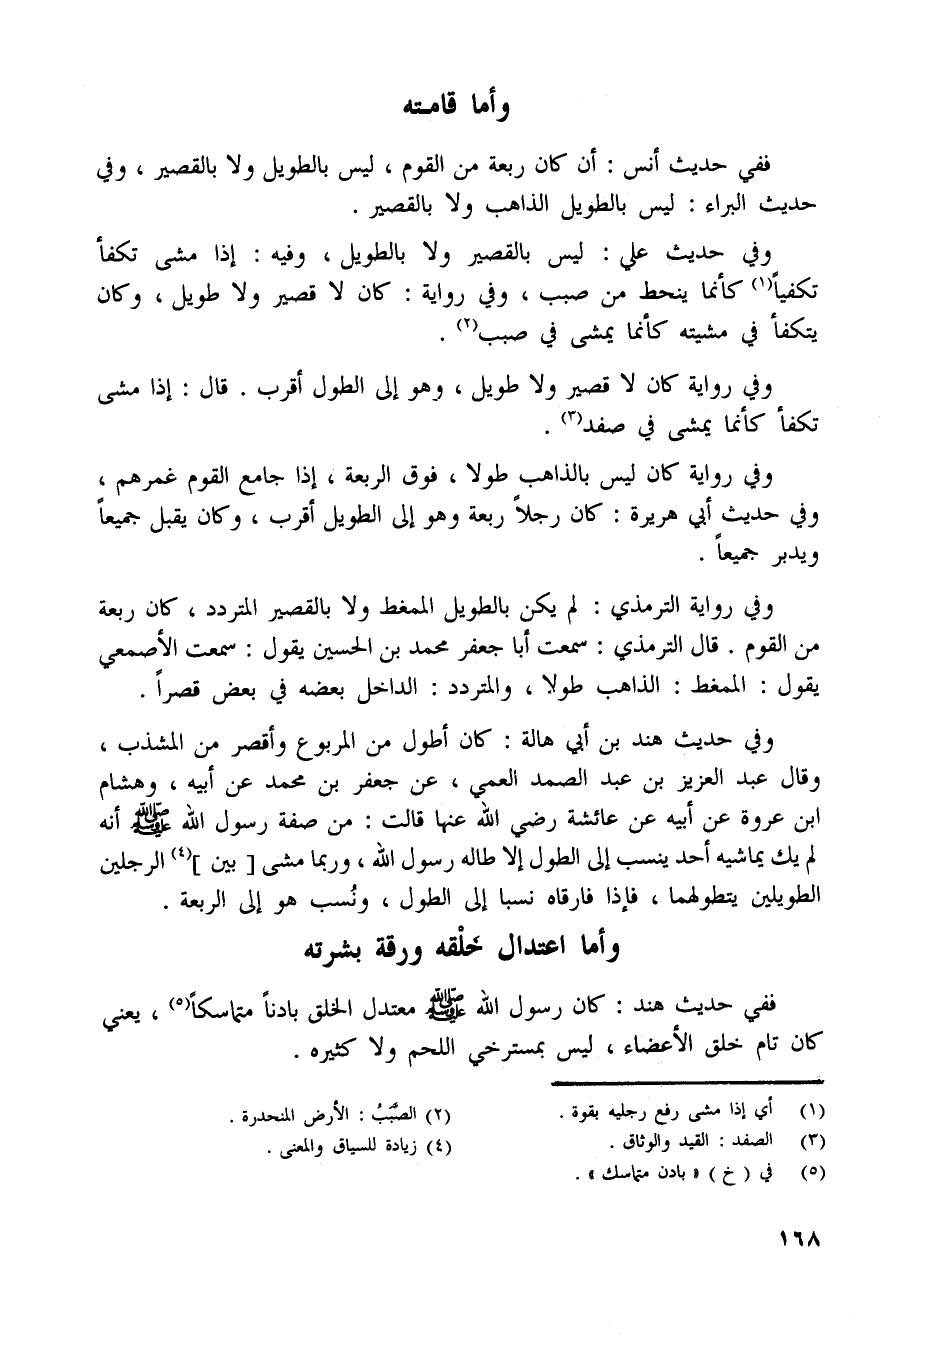 وأما قامته
ففي حديث أنس : أن كان ربعة من القوم ، ليس بالطويل ولا بالقصير ، وفي
حديث البراء : ليس بالطويل الذاهب ولا بالقصير .
وفي حديث علي : ليس بالقصير ولا بالطويل ، وفيه : إذا مشى تكفأ
تكفياً(١) كأنما ينحط من صبب ، وفي رواية : كان لا قصير ولا طويل ، وكان
يتكفأ في مشيته كأنما يمشى في صبب(٢) .
وفي رواية كان لا قصير ولا طويل ، وهو إلى الطول أقرب . قال : إذا مشى
تكفأ كأنما يمشى في صفد(٣) .
وفي رواية كان ليس بالذاهب طولا ، فوق الربعة ، إذا جامع القوم غمرهم ،
وفي حديث أبي هريرة : كان رجلاً ربعة وهو إلى الطويل أقرب ، وكان يقبل جميعاً
ويدبر جميعاً .
وفي رواية الترمذي : لم يكن بالطويل الممغط ولا بالقصير المتردد ، كان ربعة
من القوم . قال الترمذي : سمعت أبا جعفر محمد بن الحسين يقول : سمعت الأصمعي
يقول : الممغط : الذاهب طولا ، والمتردد : الداخل بعضه في بعض قصراً .
وفي حديث هند بن أبي هالة : كان أطول من المربوع وأقصر من المشذب ،
وقال عبد العزيز بن عبد الصمد العمي ، عن جعفر بن محمد عن أبيه ، وهشام
ابن عروة عن أبيه عن عائشة رضي الله عنها قالت : من صفة رسول الله ﷺ أنه
لم يك يماشيه أحد ينسب إلى الطول إلا طاله رسول الله ، وربما مشى [ بين ](٤) الرجلين
الطويلين يتطولهما ، فإذا فارقاه نسبا إلى الطول ، ونُسب هو إلى الربعة .
وأما اعتدال خَلْقه ورقة بشرته
ففي حديث هند : كان رسول الله ﷺ معتدل الخلق بادناً متماسكاً(٥) ، يعني
كان تام خلق الأعضاء ، ليس بمسترخي اللحم ولا كثيره .
(١) أي إذا مشى رفع رجليه بقوة .
(٢) الصَّبَبُ : الأرض المنحدرة .
(٣) الصفد : القيد والوثاق .
(٤) زيادة للسياق والمعنى .
(٥) في ( خ ) « بادن متماسك » .
١٦٨